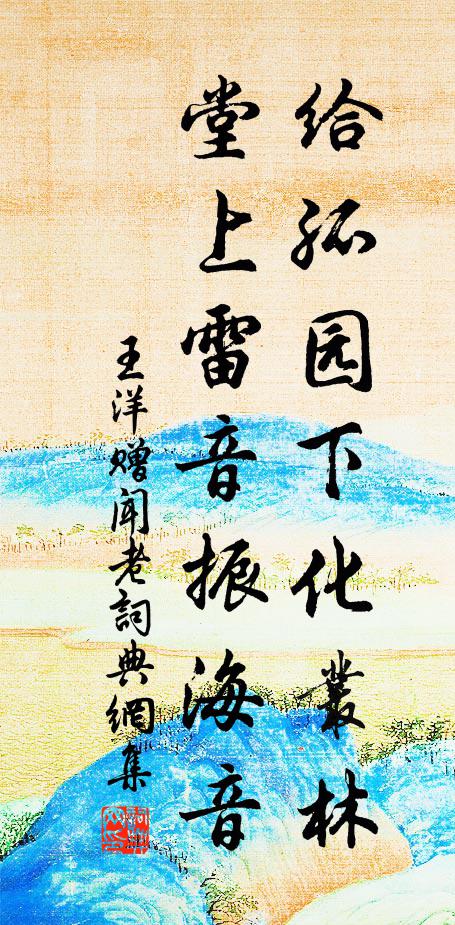 给孤园下化叢林
堂上雷音振海音
王洋赠闻老詞典網集